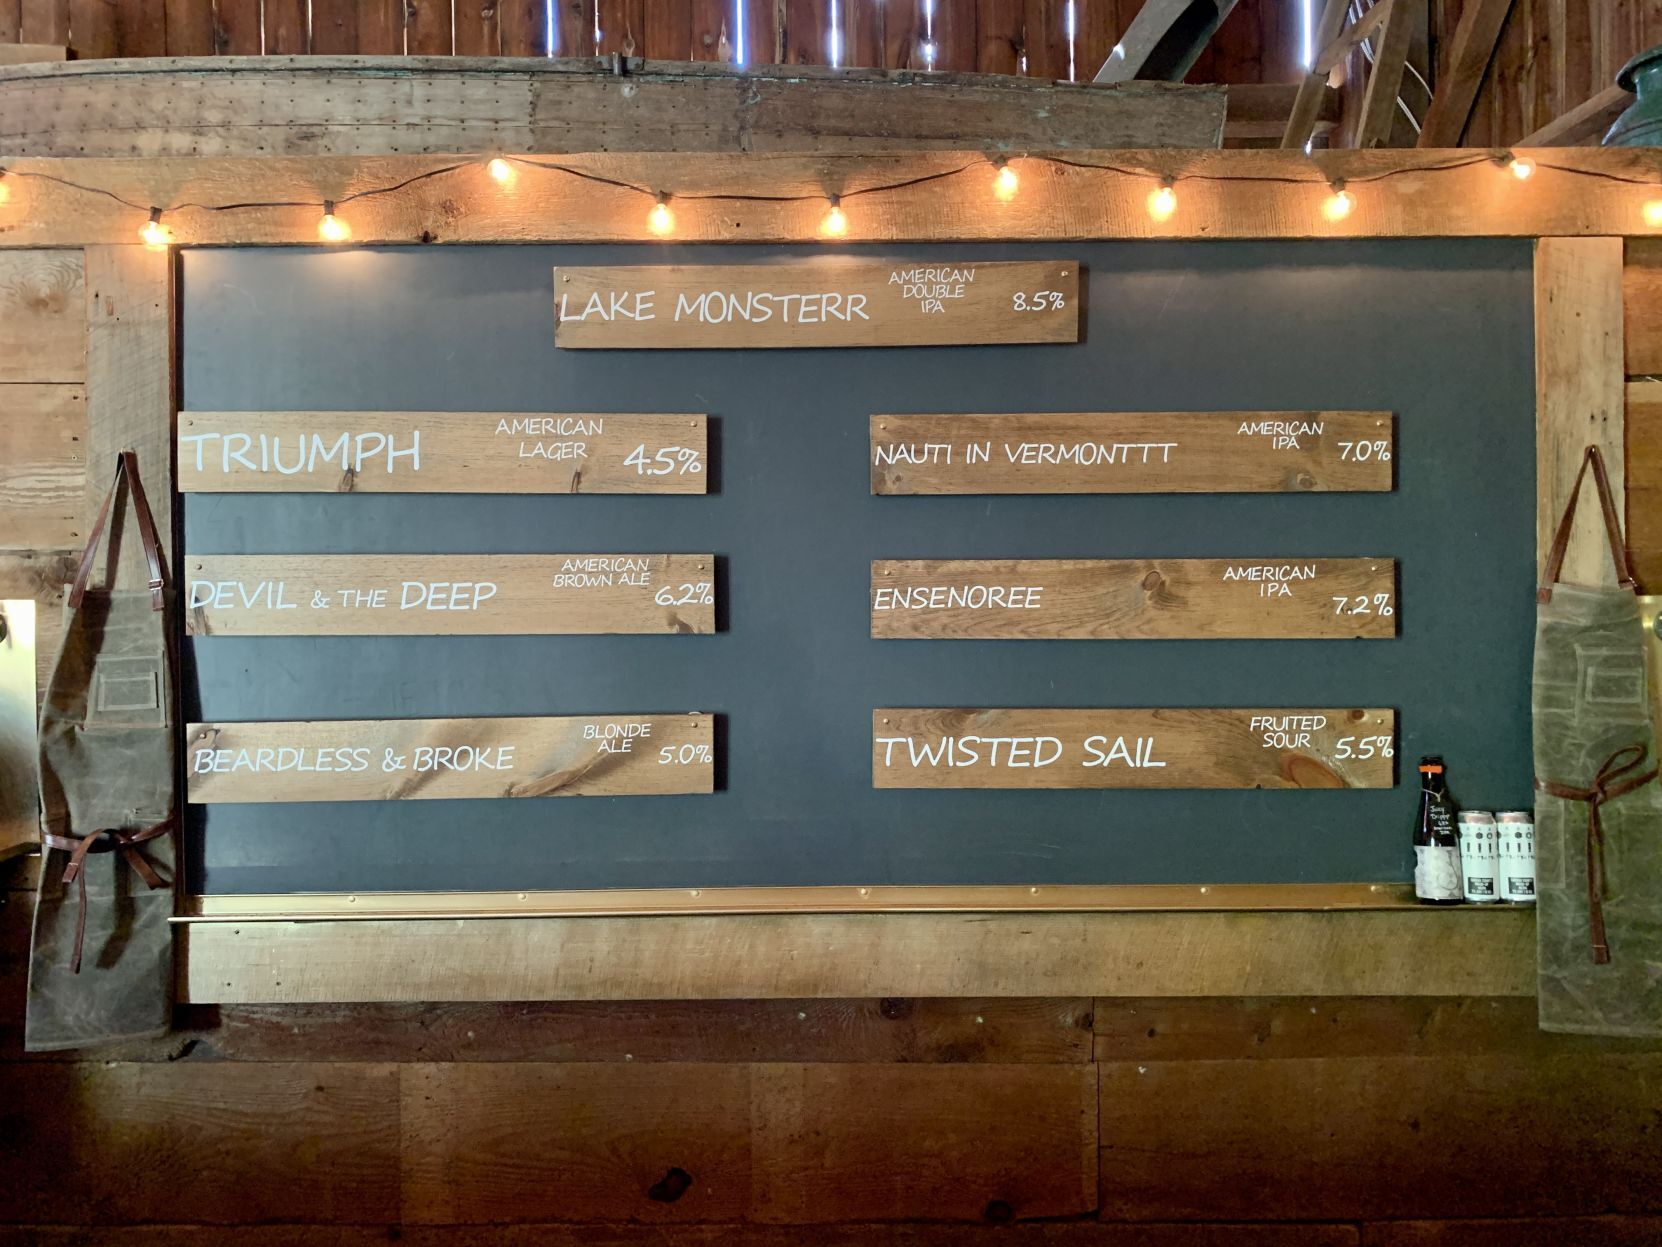 LAKE MONSTERR
AMERICAN
DOUBLE
IPA
8.5%
TRIUMPH
AMERICAN
LAGER
4.5%
NAUTI IN VERMONTTT
AMERICAN
IPA
7.0%
DEVIL & THE DEEP
AMERICAN
BROWN ALE
6.2%
ENSENOREE
AMERICAN
IPA
7.2%
BEARDLESS & BROKE
BLONDE
ALE
5.0%
TWISTED SAIL
FRUITED
SOUR
5.5%
Juicy